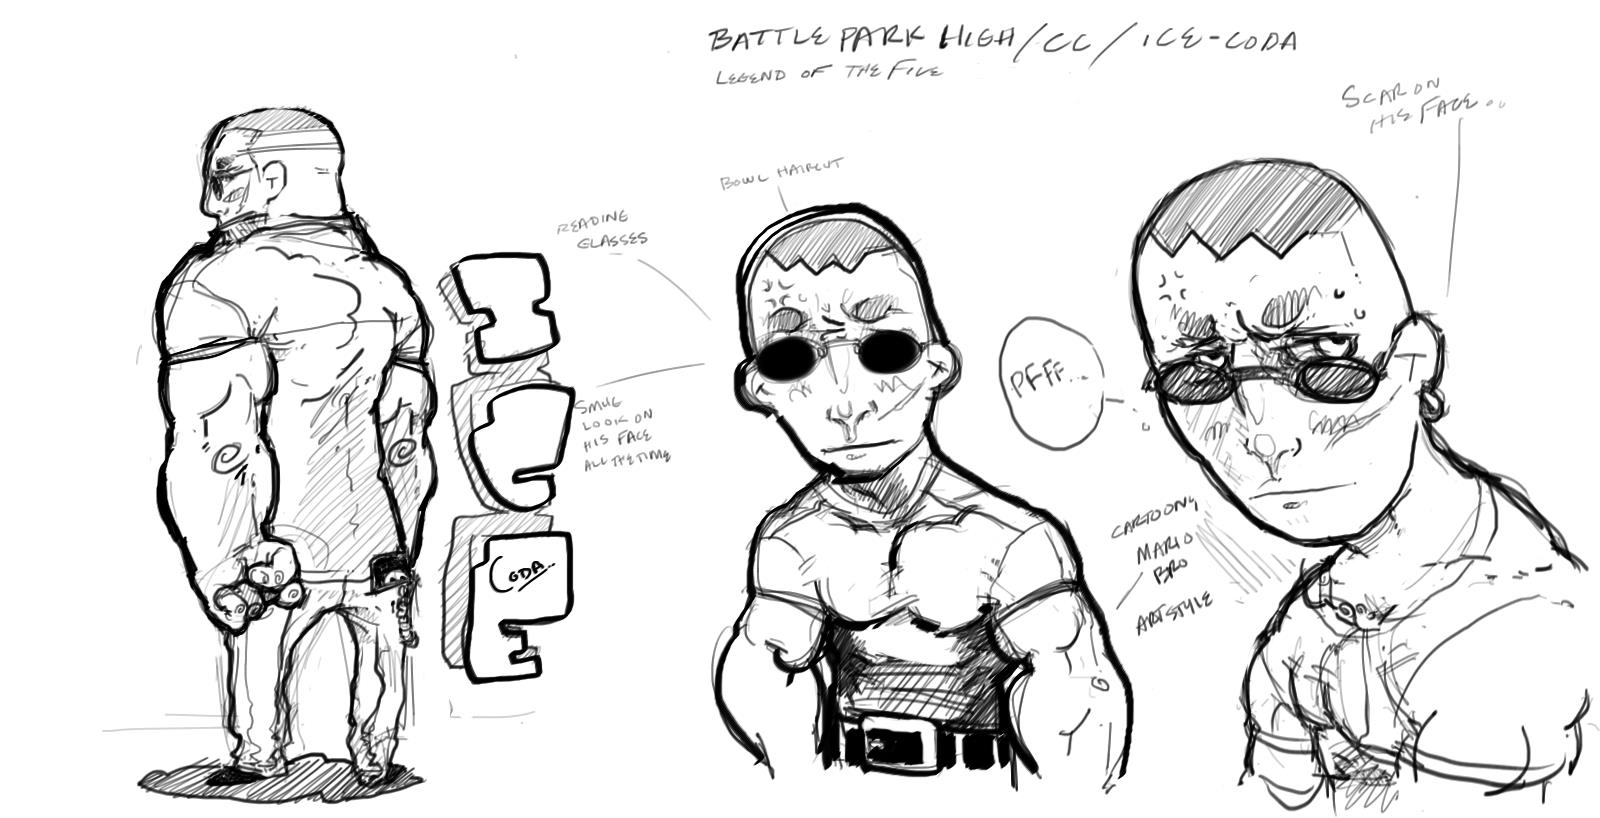 BATTLE PARK HIGH/CC/ICE-CODA
LEGEND OF THE FIVE
SCAR ON
HIS FACE...
BOWL HAIRCUT
READING
GLASSES
I
C
E
CODA...
SMUG
LOOK ON
HIS FACE
ALL THE TIME
PFFF...
CARTOONY
MARIO
BRO
ARTSTYLE